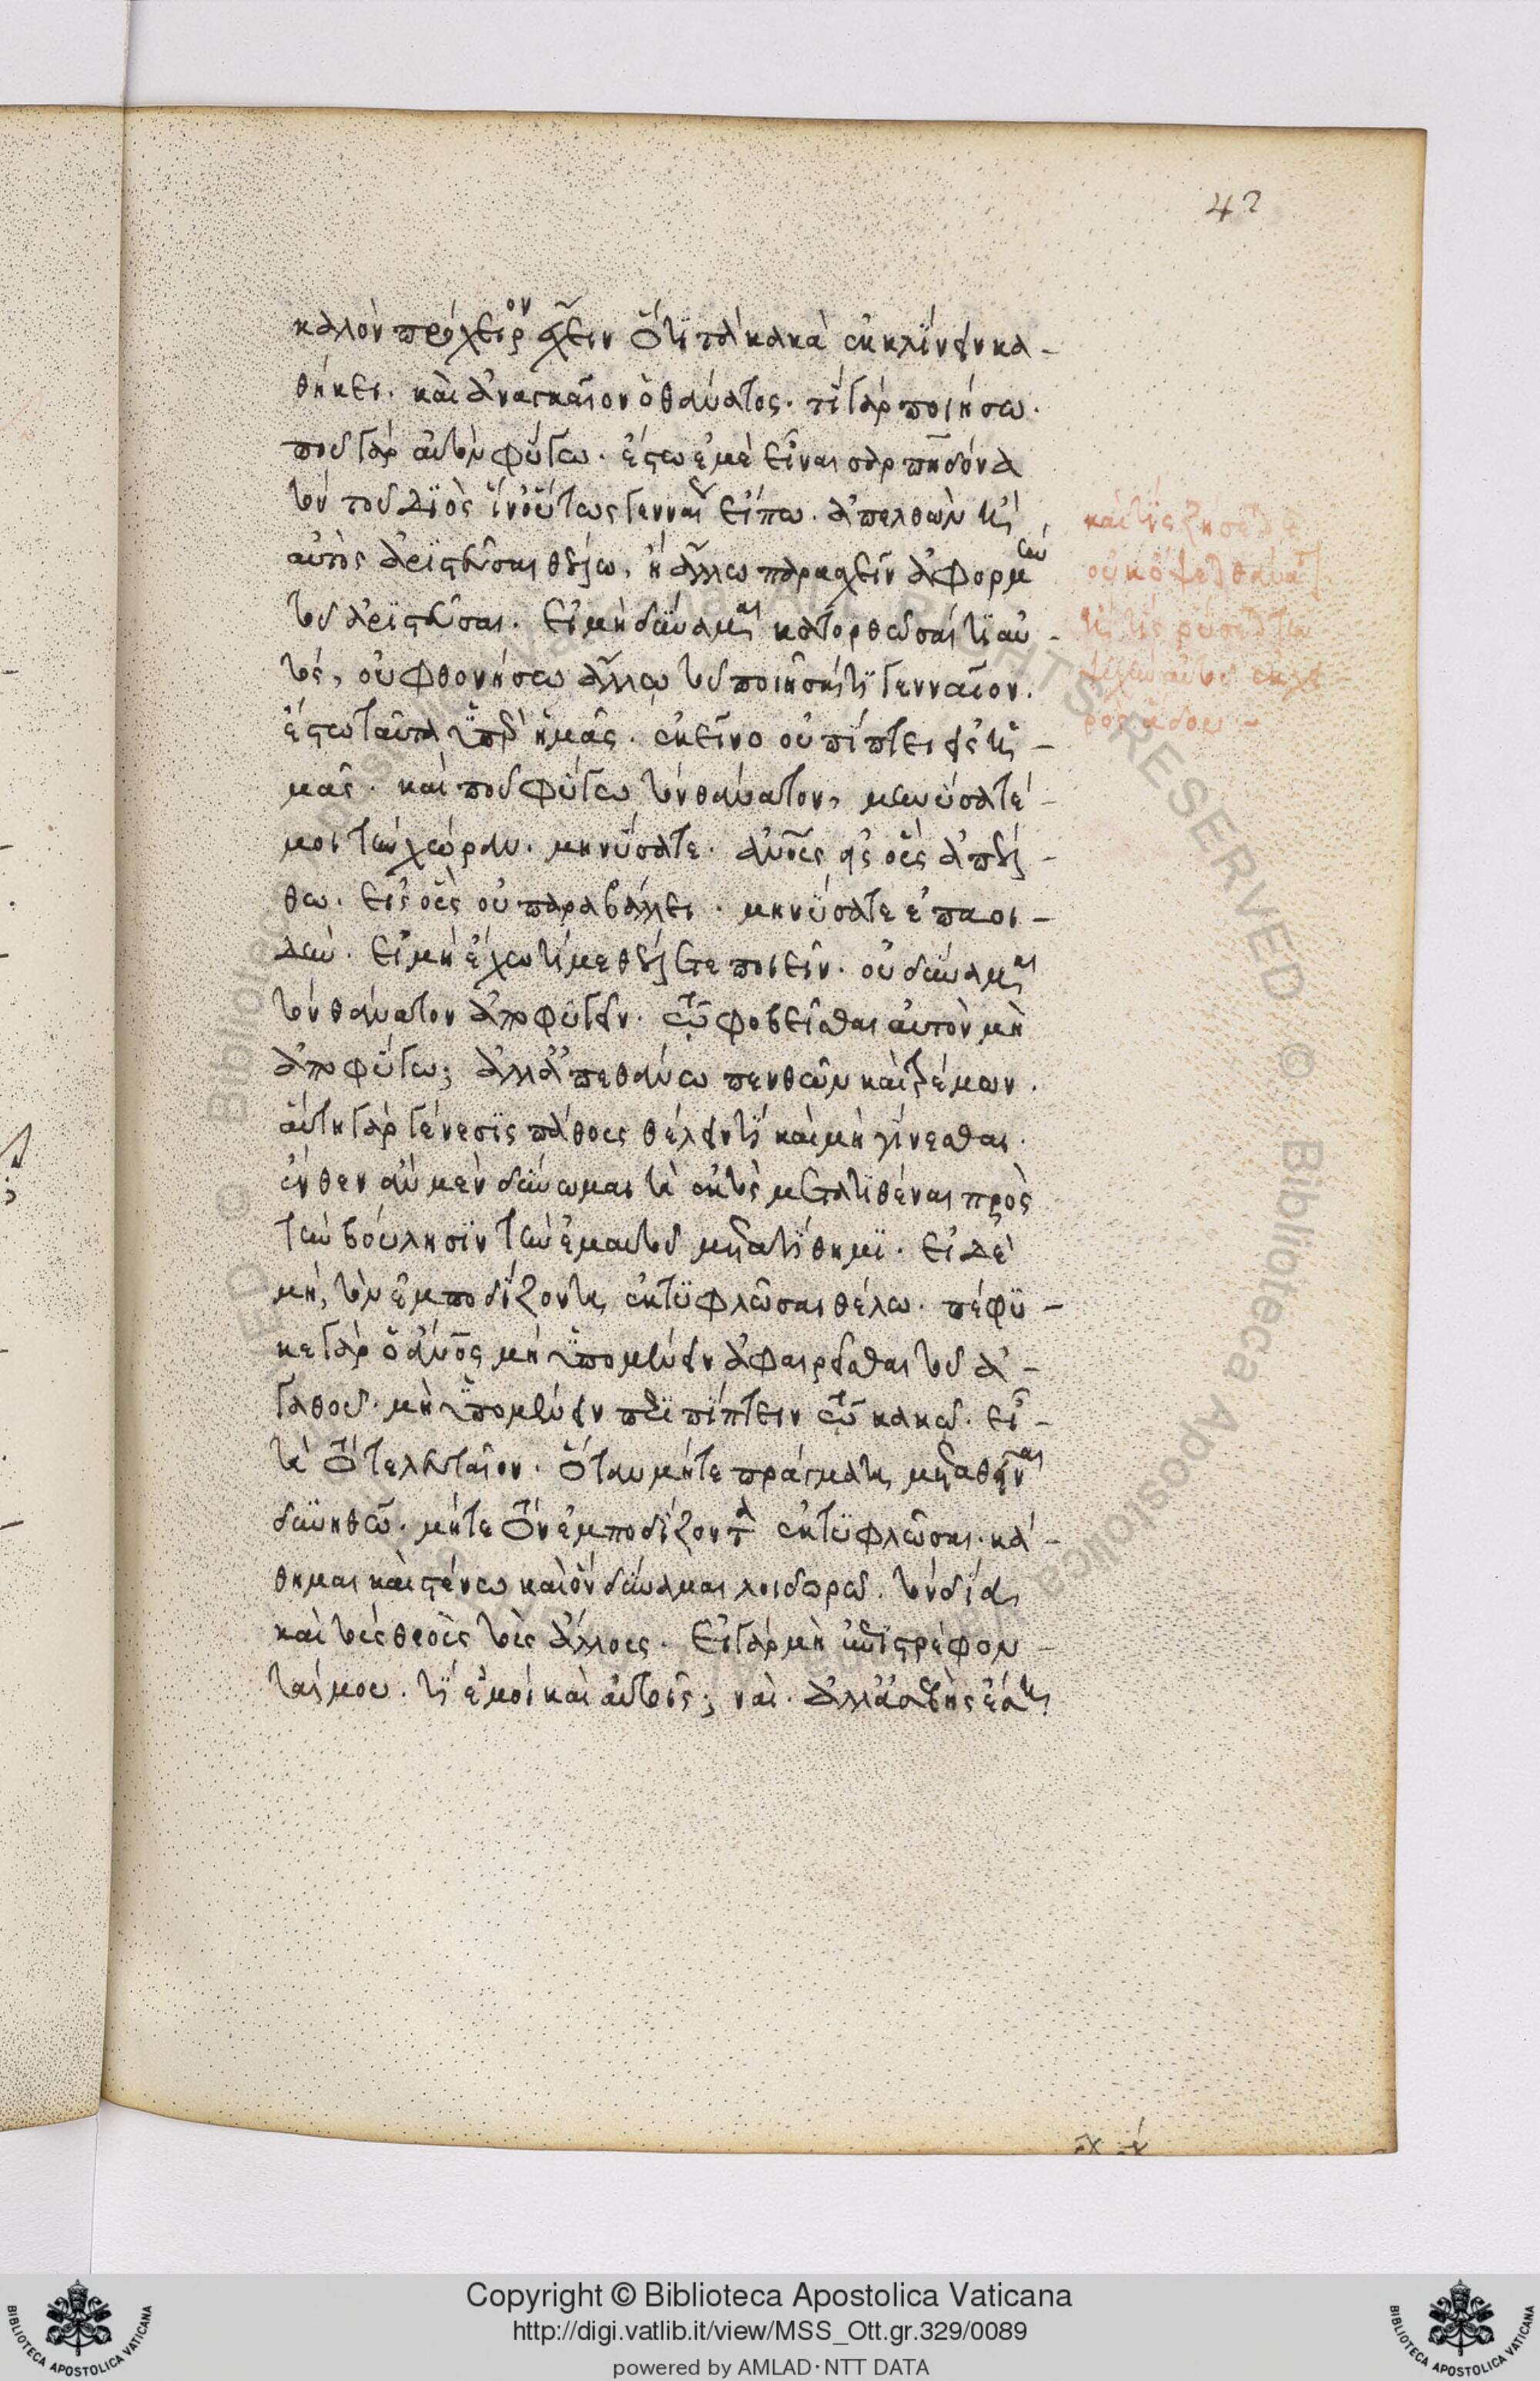 42
καλὸν πρόχειρον ἔχειν ὅτι τὰ κακὰ ἐκκλίνειν κα-
θήκει. καὶ ἀναγκαῖον ὁ θάνατος. τί γὰρ ποιήσω.
ποῦ γὰρ αὐτὸν φύγω. ἔστω ἐμὲ εἶναι σαρπηδόνα
τὸν τοῦ Διὸς ἵν' οὕτως γενναίως εἴπω. ἀπελθὼν ἢ
αὐτὸς ἀριστεῦσαι θέλω, ἢ ἄλλω παρασχεῖν ἀφορμὴν
τοῦ ἀριστεῦσαι. εἰ μὴ δύναμαι κατορθῶσαί τι αὐ-
τός, οὐ φθονήσω ἄλλω τοῦ ποιῆσαί τι γενναῖον.
ἔστω ταῦτα ὑπὲρ ἡμᾶς. ἐκεῖνο οὐ πίπτει εἰς ἡ-
μᾶς. καὶ ποῦ φύγω τὸν θάνατον, μηνύσατέ
μοι τὴν χώραν. μηνύσατε ἀνους εἰς οὓς ἀπέλ-
θω. εἰς οὓς οὐ παραβάλλει. μηνύσατε ἐπαοι-
δήν. εἰ μὴ ἔχω τί με θέλετε ποιεῖν. οὐ δύναμαι
τὸν θάνατον ἀποφύγειν. τὸ φοβεῖσθαι αὐτὸν μὴ
ἀποφύγω; ἀλλ' ἀπεθάνω πενθῶν καὶ τρέμων.
αὕτη γὰρ γένεσις πάθους θέλειν τι καὶ μὴ γίνεσθαι.
ἔνθεν ἂν μὲν δύνωμαι τὰ ἐκτὸς μετατιθέναι πρὸς
τὴν βούλησιν τὴν ἐμαυτοῦ μετατίθημι. εἰ δὲ
μὴ, τὸν ἐμποδίζοντα ἐκτυφλῶσαι θέλω. πέφυ-
κε γὰρ ὁ ἀνος μὴ ὑπομένειν ἀφαιρεῖσθαι τοῦ ἀ-
γαθοῦ. μὴ ὑπομένειν περιπίπτειν τῶ κακῶ. εἶ-
τα τὸ τελευταῖον. ὅταν μήτε πράγματα μεταθεῖναι
δυνηθῶ. μήτε τὸν ἐμποδίζοντα ἐκτυφλῶσαι. κά-
θημαι καὶ στένω καὶ ὃν δύναμαι λοιδορῶ. τὸν δία
καὶ τοὺς θεοὺς τοὺς ἄλλους. εἰ γὰρ μὴ ἐπιστρέφον-
ταί μου. τί ἐμοὶ καὶ αὐτοῖς; ναὶ. ἀλλ' ἀσεβὴς ἔση
Copyright © Biblioteca Apostolica Vaticana
http://digi.vatlib.it/view/MSS_Ott.gr.329/0089
powered by AMLAD·NTT DATA